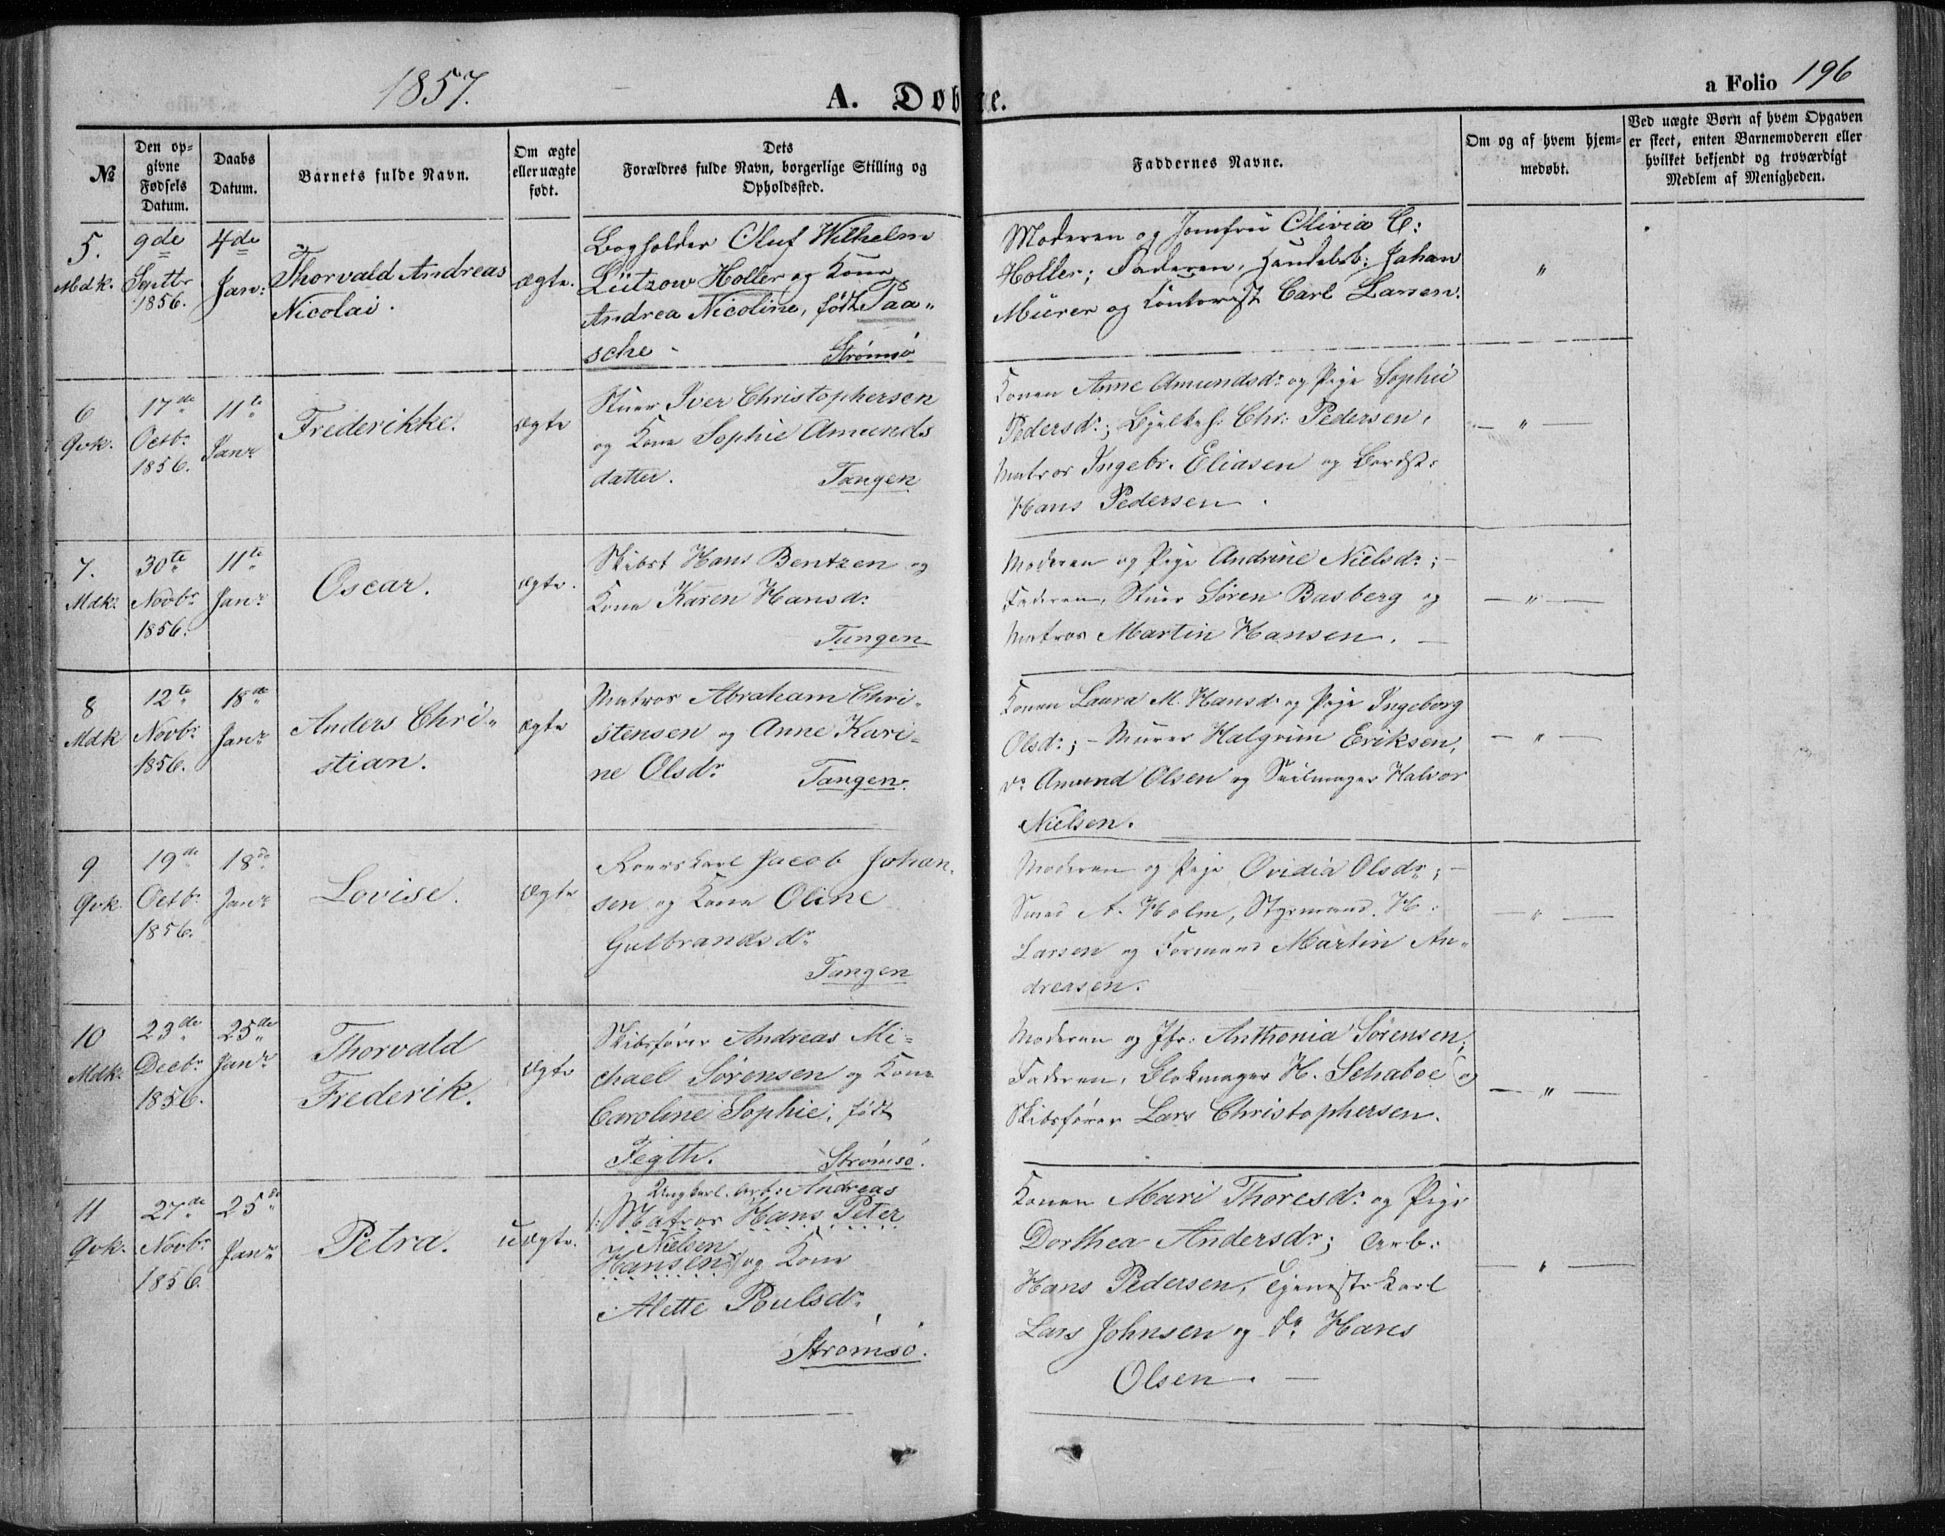 1857.
A. Døbte.
a Folio 196
№
Den op-
givne
Fødsels
Datum.
Daabs
Datum.
Barnets fulde Navn.
Om ægte
eller uægte
født.
Dets
Forældres fulde Navn, borgerlige Stilling og
Opholdssted.
Faddernes Navne.
Om og af hvem hjem-
medøbt.
Ved uægte Børn af hvem Opgaven
er skeet, enten Barnemoderen eller
hvilket bekjendt og troværdigt
Medlem af Menigheden.
5.
Mdk.
9de
Septbr
1856.
4de
Jan:
Thorvald Andreas
Nicolai.
ægte.
Bogholder Oluf Wilhelm
Lützow Holler og Kone
Andrea Nicoline, født Paa-
sche -
Strømsø
Moderen og Jomfru Olivia C:
Holler; Faderen, Handelsb: Johan
Mürer og Kontorist Carl Larsen.
"
6
Qvk.
17de
Octbr
1856.
11te
Janr
Frederikke.
ægte
Stuer Iver Christophersen
og Kone Sophie Amunds
datter.
Tangen
Konen Anne Amundsdr og Pige Sophie
Pedersdr; Chr: Pedersen,
Matros Ingebr. Eliasen og
Hans Pedersen.
— " —
7.
Mdk.
30te
Novbr
1856.
11te
Janr
Oscar.
ægte.
Skibst Hans Bentzen og
Kone Karen Hansdr
Tangen
Moderen og Pige Andrine Nielsdr; —
Faderen, Stuer Søren Basberg og
Matros Martin Hansen. —
— " —
8
Mdk
12te
Novbr
1856.
18de
Janr
Anders Chri-
stian.
ægte
Matros Abraham Chri-
stensen og Anne Kari-
ne Olsdr
Tangen.
Konen Laura M. Hansd og Pige Ingeborg
Olsdr; — Murer Halgrim Eriksen,
do Amund Olsen og Seilmager Halvor
Nielsen.
— " —
9
Qvk.
19de
Octbr
1856.
18de
Janr
Lovise.
ægte
Roerskarl Jacob Johan-
sen og Kone Oline
Gulbrandsdr
Tangen
Moderen og Pige Ovidia Olsdr; —
Smed A. Holm, Styrmand H.
Larsen og Formand Martin An-
dreasen.
— " —
10
Mdk.
23de
Decbr
1856.
25de
Janr
Thorvald
Frederik.
ægte
Skibsfører Andreas Mi-
chael Sørensen og Kone
Caroline Sophie, født
Fegth.
Strømsø.
Moderen og Jfr: Anthonia Sørensen;
Faderen, Blokmager H. Schaboe og
Skibsfører Lars Christophersen.
— " —
11
Qvk.
27de
Novbr
1856.
25de
Janr
Petra.
uægte.
Ungkarl. Arb: Andreas
Matros Hans Peter
Nielsen
Hansen og Kone
Alette Poulsdr
Strømsø.
Konen Mari Thoresdr og Pige
Dorthea Andersdr; Arb:
Hans Pedersen, Tjenestekarl
Lars Johnsen og do Hans
Olsen. —
— " —